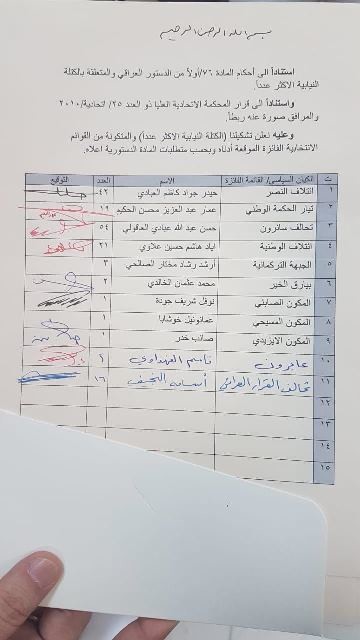 بسم الله الرحمن الرحيم
استناداً الى أحكام المادة ٧٦/أولاً من الدستور العراقي والمتعلقة بالكتلة
النيابية الاكثر عدداً.
واستناداً الى قرار المحكمة الاتحادية العليا ذو العدد ٢٥/ اتحادية/٢٠١٠
والمرافق صورة عنه ربطاً.
وعليه نعلن تشكيلنا (الكتلة النيابية الاكثر عدداً) والمتكونة من القوائم
الانتخابية الفائزة الموقعة أدناه وبحسب متطلبات المادة الدستورية اعلاه.
ت الكيان السياسي/ القائمة الفائزة الاسم العدد التوقيع
١ ائتلاف النصر حيدر جواد كاظم العبادي ٤٢
٢ تيار الحكمة الوطني عمار عبد العزيز محسن الحكيم ١٩
٣ تحالف سائرون حسن عبد الله عبادي العاقولي ٥٤
٤ ائتلاف الوطنية اياد هاشم حسين علاوي ٢١
٥ الجبهة التركمانية أرشد رشاد مختار الصالحي ٣
٦ بيارق الخير محمد عثمان الخالدي ٢
٧ المكون الصابئي نوفل شريف جودة ١
٨ المكون المسيحي عمانوئيل خوشابا ١
٩ المكون الايزيدي صائب خدر ١
١٠ عابرون قاسم الفهداوي
١١ تحالف القرار العراقي أسامه النجيفي ١٦
١٢
١٣
١٤
١٥